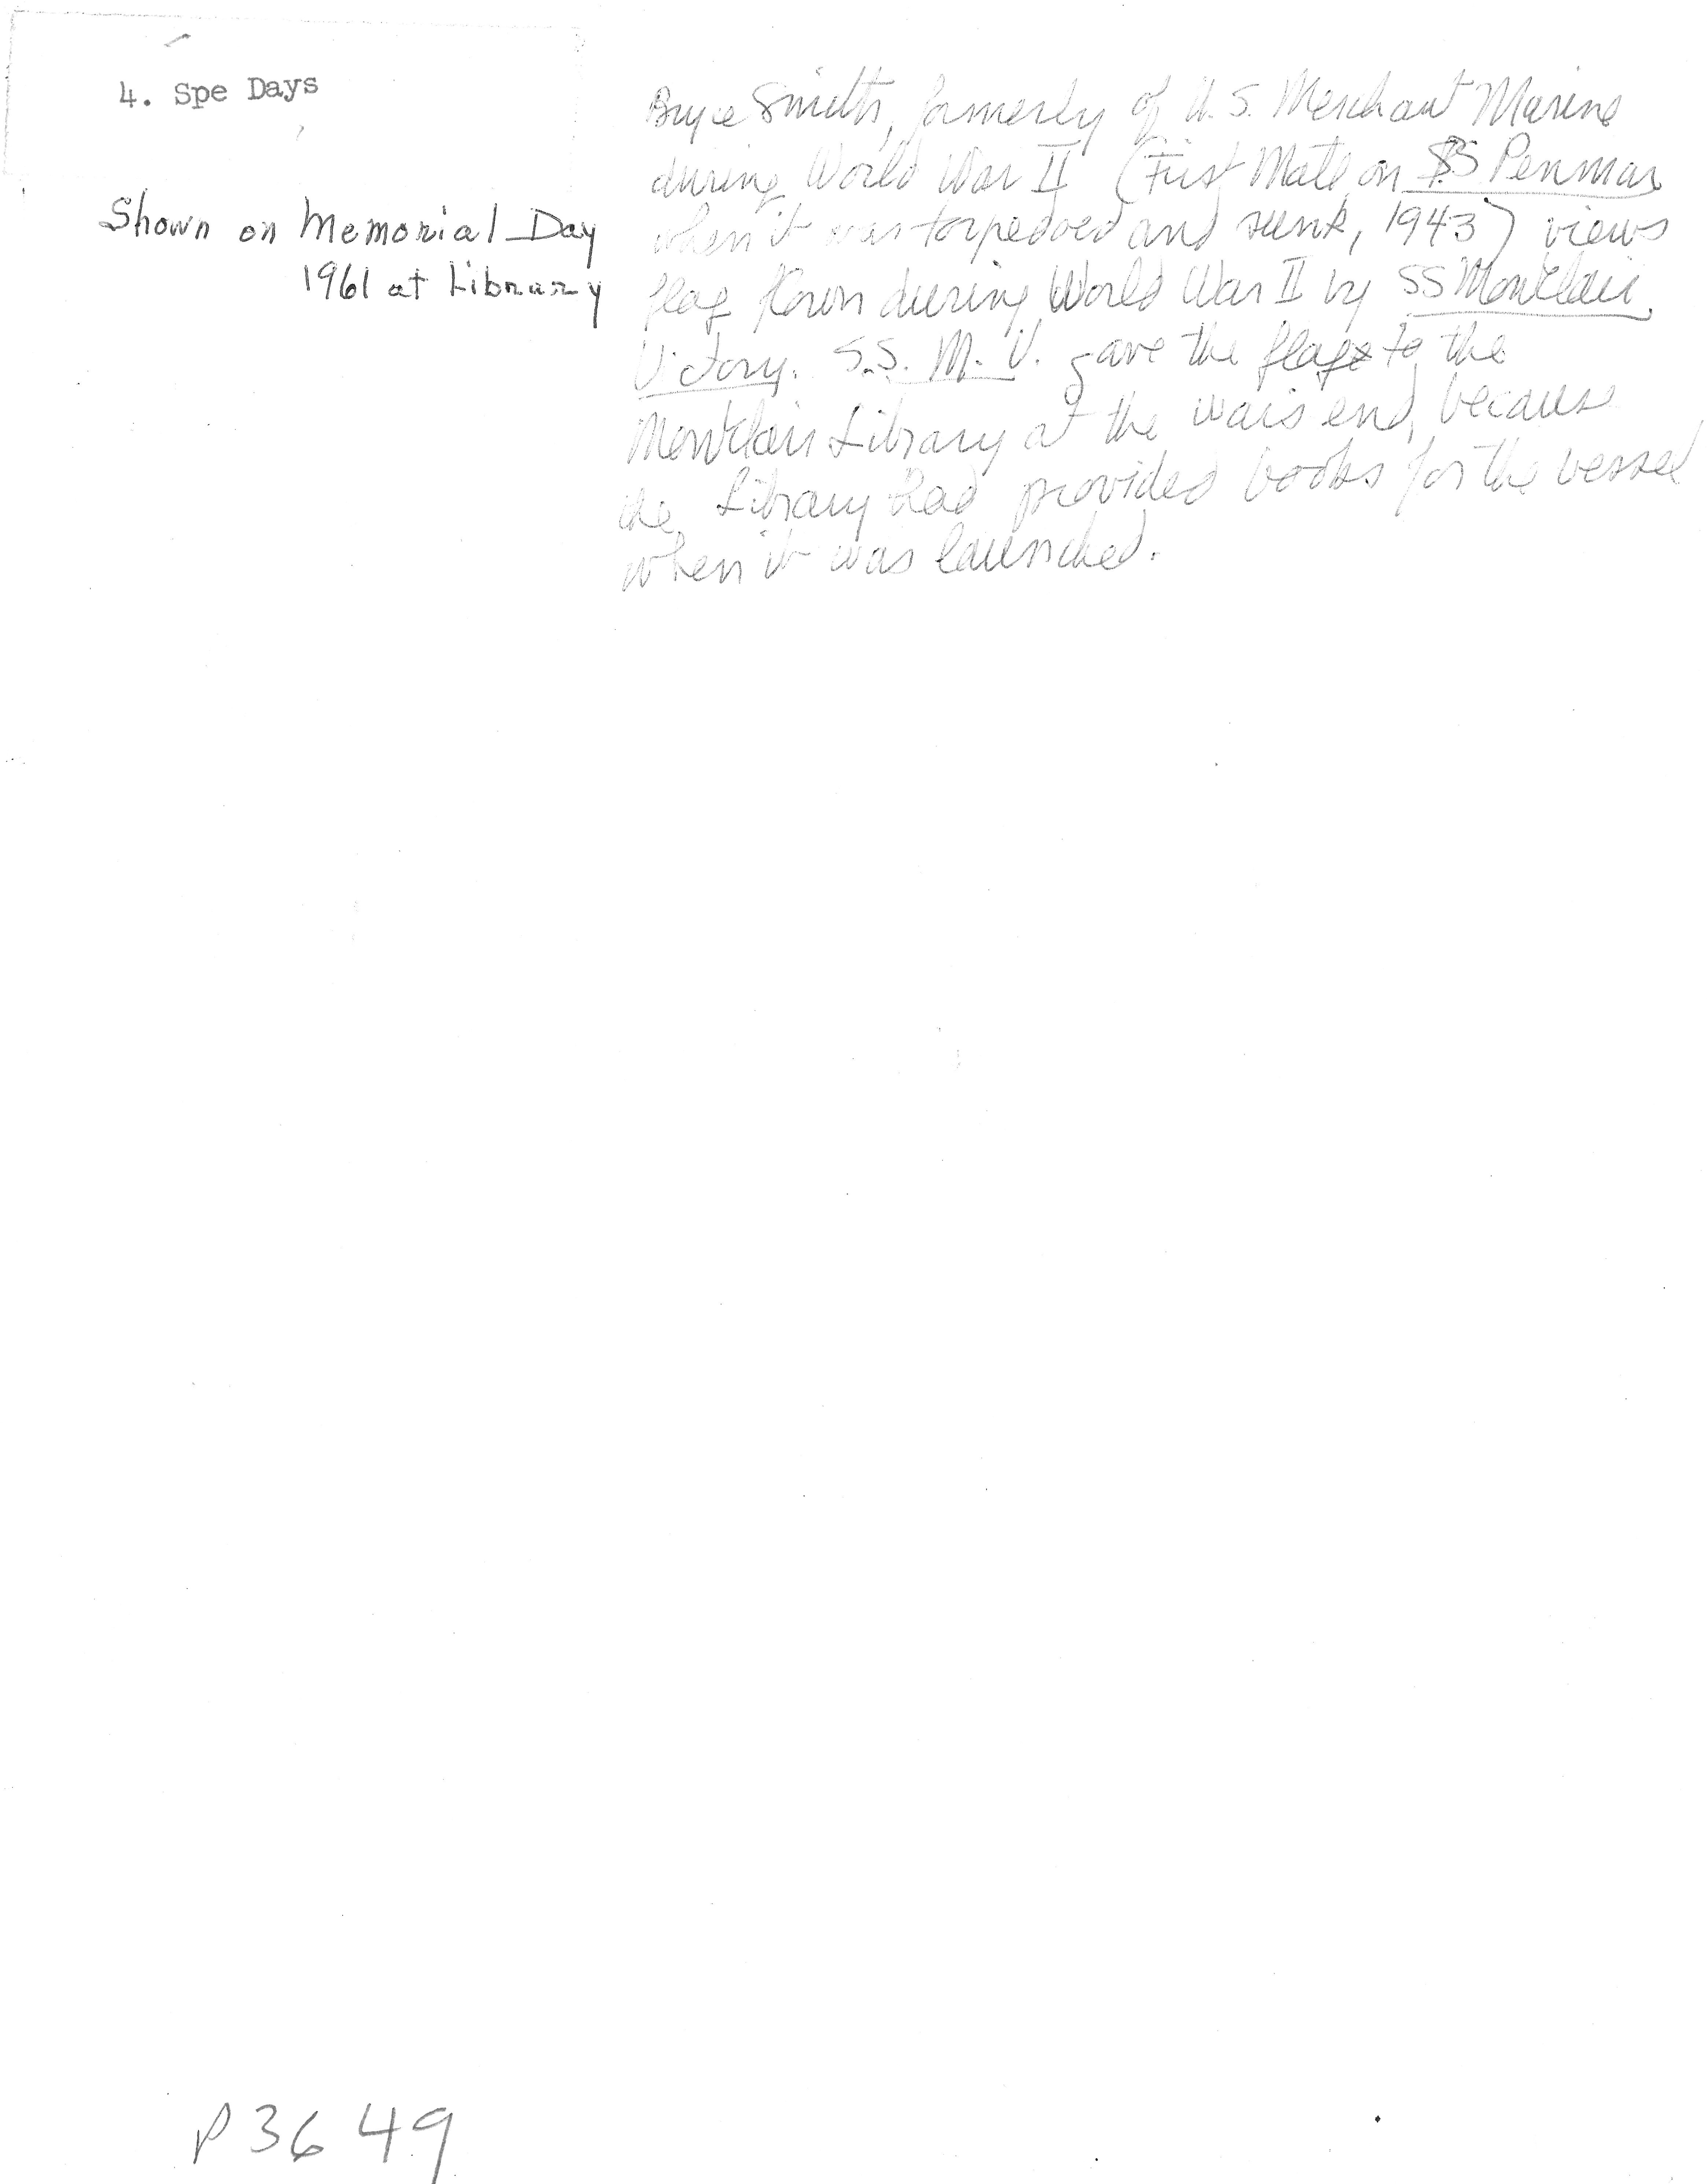 4. Spe Days
Shown on Memorial Day
1961 at Library
Bryce Smith, formerly of U.S. Merchant Marine
during World War II (First Mate on SS Penmar
when it was torpedoed and sunk, 1943) views
flag flown during World War II by SS Montclair
Victory. S.S. M.V. gave the flag to the
Montclair Library at the war's end, because
the Library had provided books for the vessel
when it was launched.
P3649